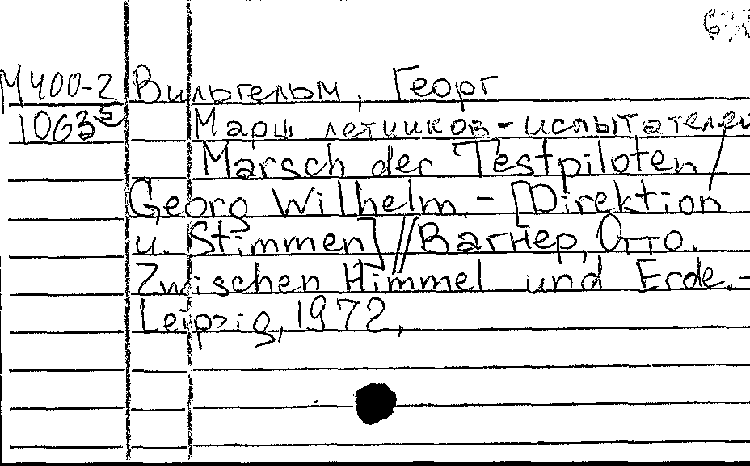 М400-2 Вильгельм, Георг
1063 Марш летчиков-испытателей
Marsch der Testpiloten /
Georg Wilhelm. - [Direktion
u. Stimmen] // Вагнер, Отто.
Zwischen Himmel und Erde. -
Leipzig, 1972,